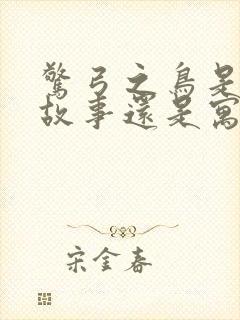 驚弓之鳥是
故事還是寓
宋金春